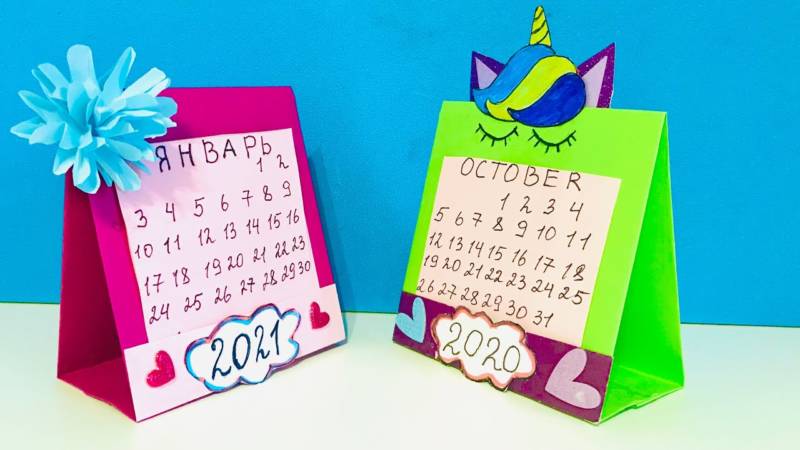 ЯНВАРЬ
1 2
3 4 5 6 7 8 9
10 11 12 13 14 15 16
17 18 19 20 21 22 23
24 25 26 27 28 29 30
2021
OCTOBER
1 2 3 4
5 6 7 8 9 10 11
12 13 14 15 16 17 18
19 20 21 22 23 24 25
26 27 28 29 30 31
2020